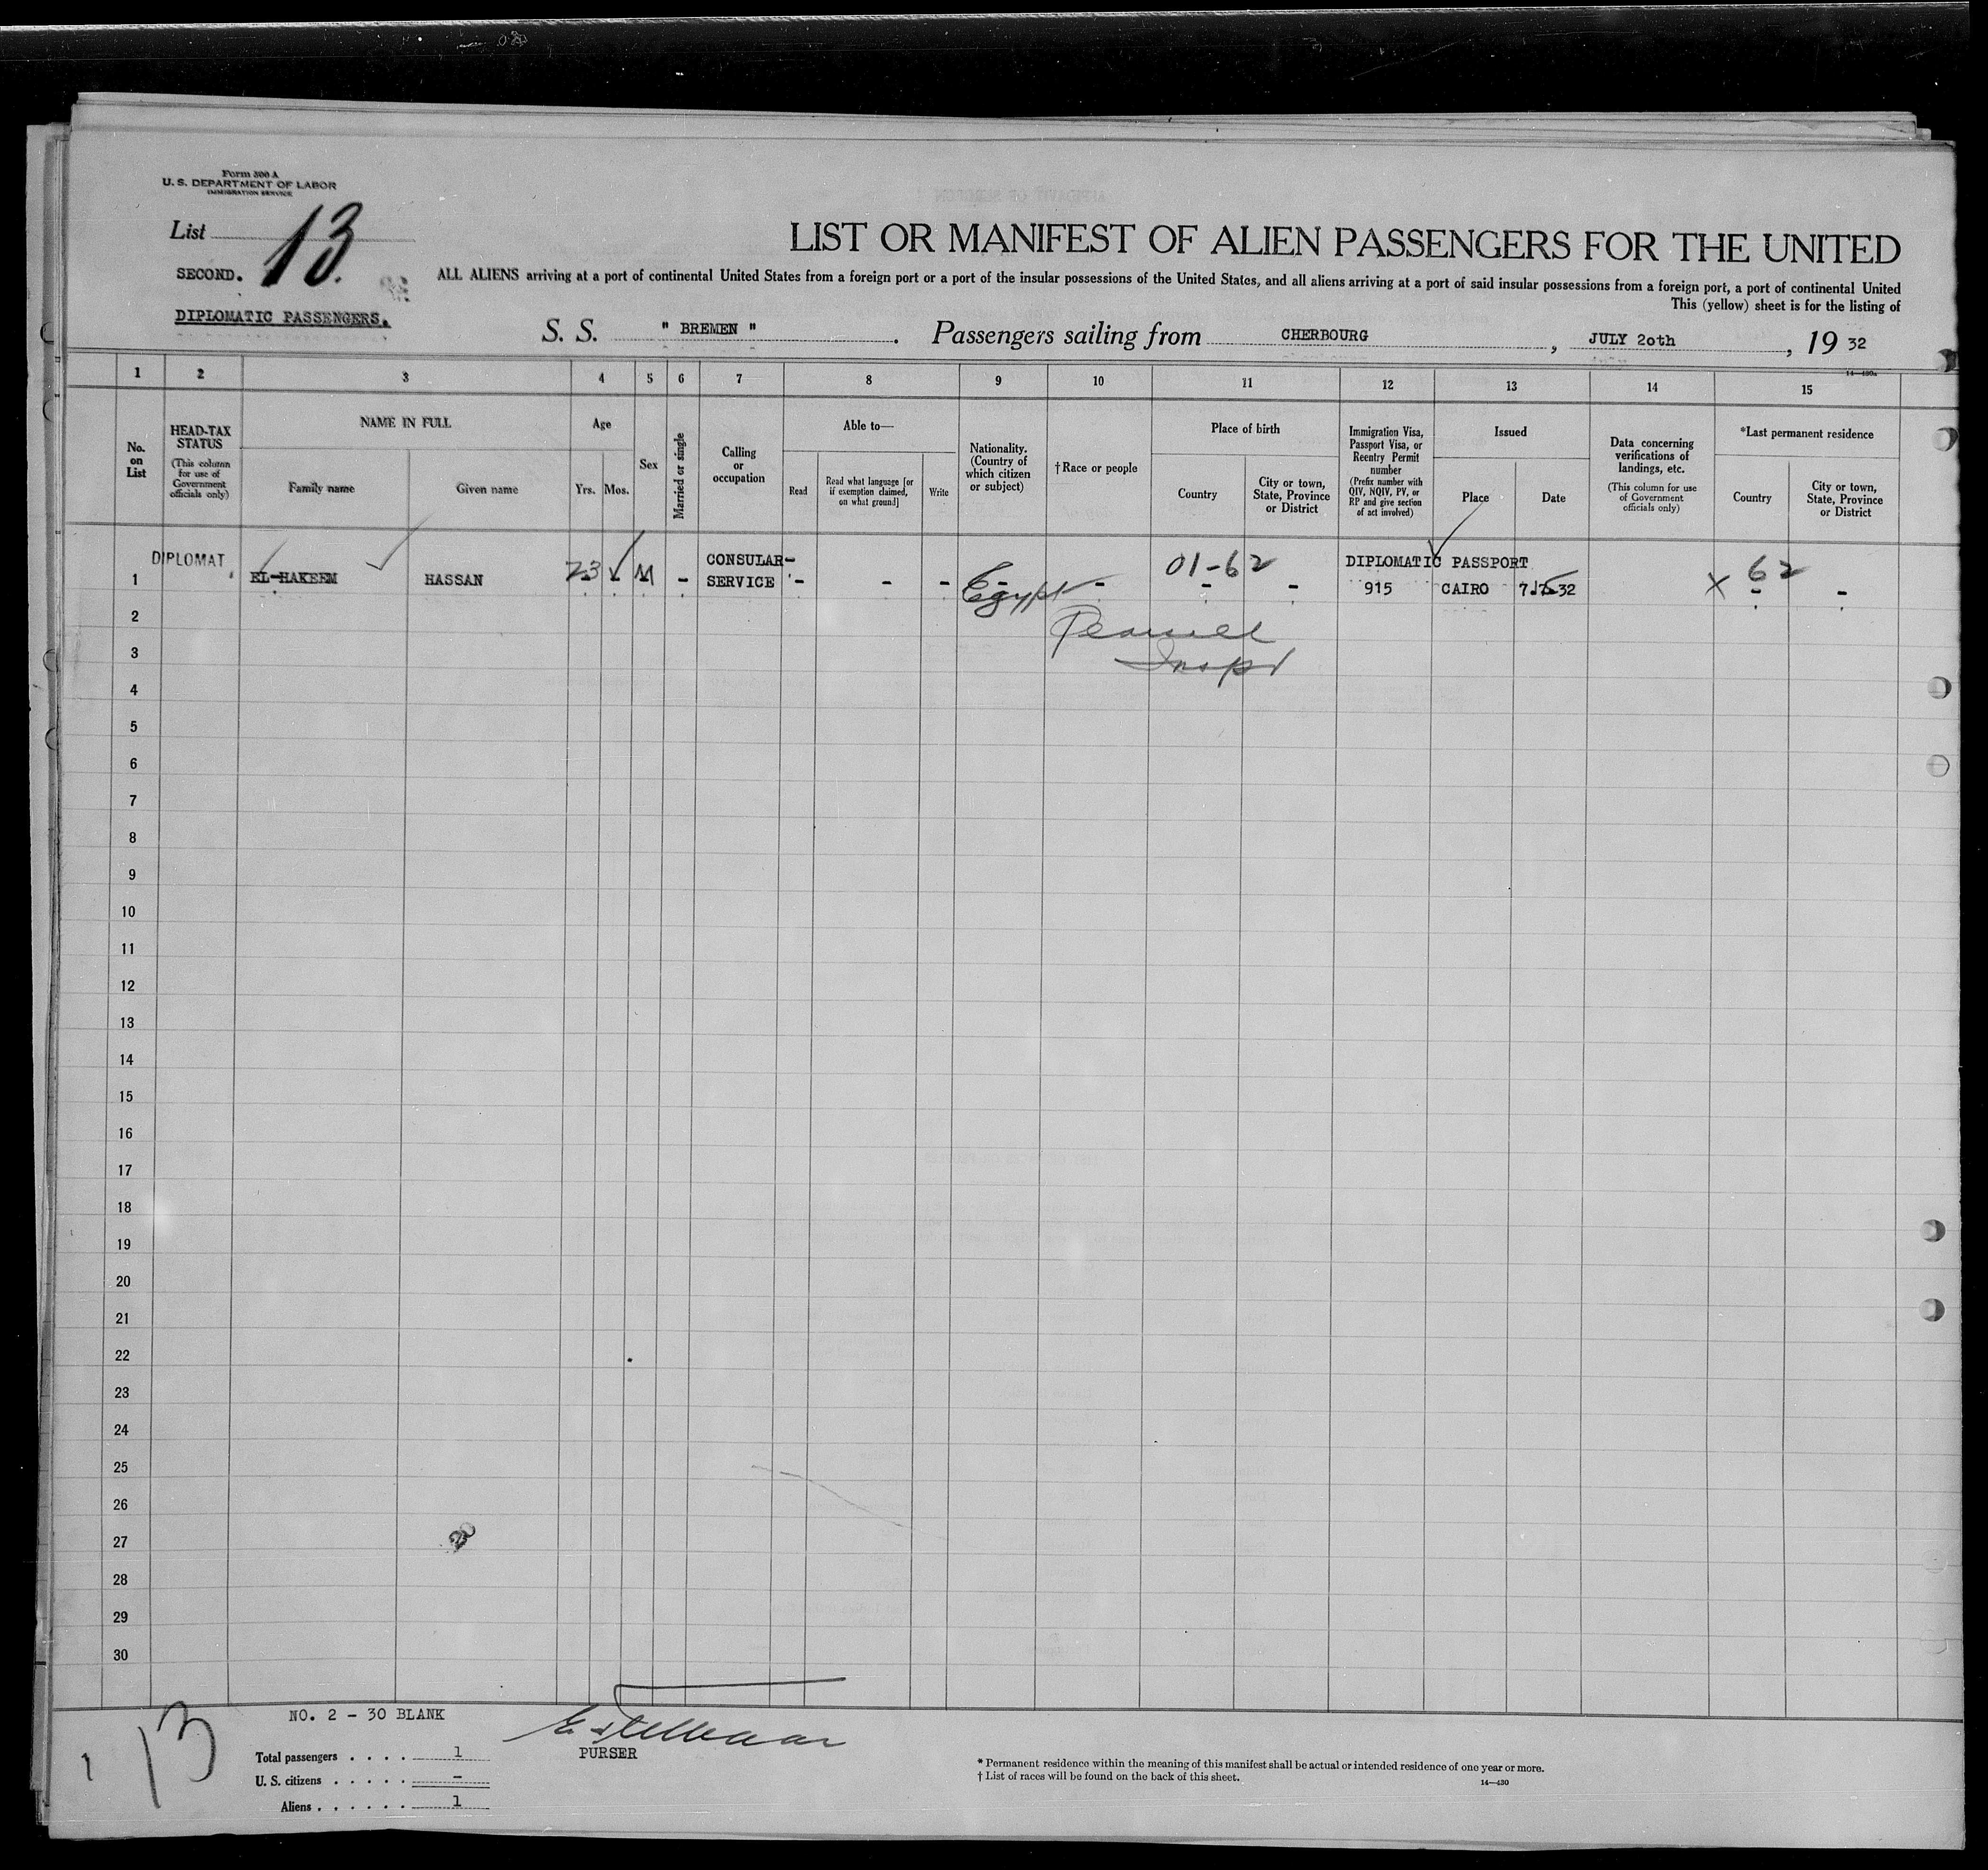 Form 500 A
U. S. DEPARTMENT OF LABOR
IMMIGRATION SERVICE
List 13.
SECOND.
DIPLOMATIC PASSENGERS.
LIST OR MANIFEST OF ALIEN PASSENGERS FOR THE UNITED
ALL ALIENS arriving at a port of continental United States from a foreign port or a port of the insular possessions of the United States, and all aliens arriving at a port of said insular possessions from a foreign port, a port of continental United
This (yellow) sheet is for the listing of
S. S. " BREMEN " . Passengers sailing from CHERBOURG , JULY 20th , 19 32
14—430a
1 2 3 4 5 6 7 8 9 10 11 12 13 14 15
No. on List
HEAD-TAX STATUS
(This column for use of Government officials only)
NAME IN FULL
Family name
Given name
Age
Yrs.
Mos.
Sex
Married or single
Calling or occupation
Able to—
Read
Read what language [or if exemption claimed, on what ground]
Write
Nationality. (Country of which citizen or subject)
†Race or people
Place of birth
Country
City or town, State, Province or District
Immigration Visa, Passport Visa, or Reentry Permit number
(Prefix number with QIV, NQIV, PV, or RP and give section of act involved)
Issued
Place
Date
Data concerning verifications of landings, etc.
(This column for use of Government officials only)
*Last permanent residence
Country
City or town, State, Province or District
DIPLOMAT CONSULAR- 01-62 DIPLOMATIC PASSPORT 62
1 EL-HAKEEM HASSAN 23 M - SERVICE - - - Egypt - - - 915 CAIRO X - -
2
3 Inspt
4
5
6
7
8
9
10
11
12
13
14
15
16
17
18
19
20
21
22
23
24
25
26
27
28
29
30
NO. 2 - 30 BLANK
PURSER
Total passengers . . . . 1
U. S. citizens . . . . . -
Aliens . . . . . . 1
1 13
* Permanent residence within the meaning of this manifest shall be actual or intended residence of one year or more.
† List of races will be found on the back of this sheet.
14—430